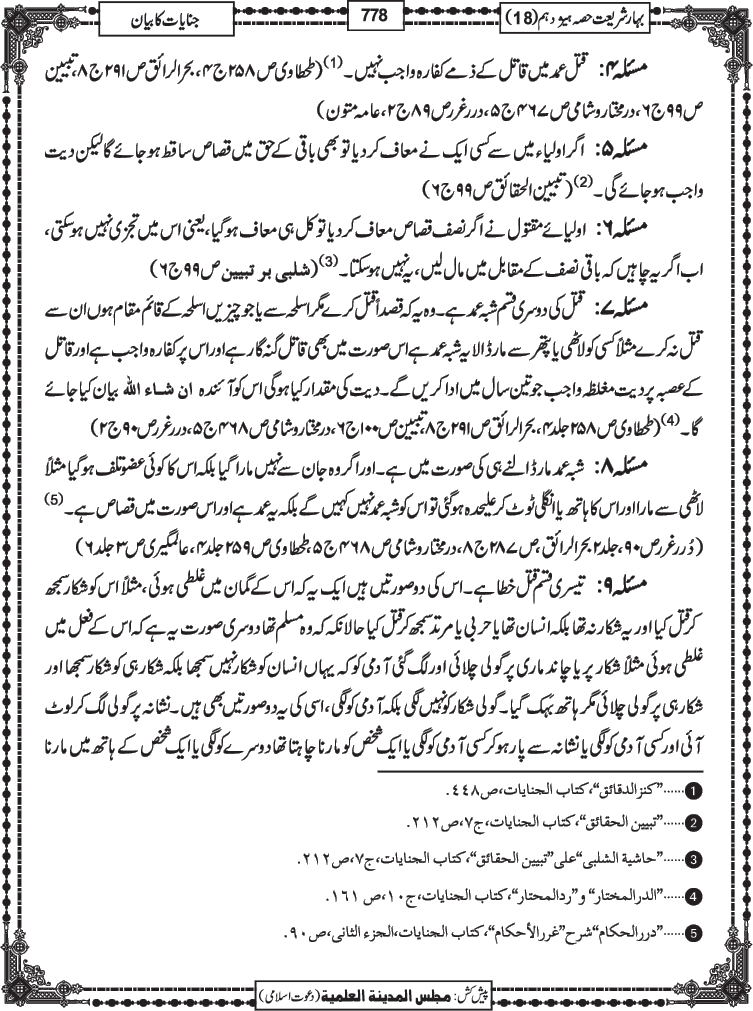 بہارِ شریعت حصہ ہیژدہم (18)
778
جنایات کا بیان
مسئلہ ۴: قتل عمد میں قاتل کے ذمے کفارہ واجب نہیں۔(1) (طحطاوی ص ۲۵۸ ج ۴، بحرالرائق ص ۲۹۱ ج ۸، تبیین
ص ۹۹ ج ۶، درمختار و شامی ص ۴۶۷ ج ۵، درر غرر ص ۸۹ ج ۲، عامہ متون)
مسئلہ ۵: اگر اولیاء میں سے کسی ایک نے معاف کر دیا تو بھی باقی کے حق میں قصاص ساقط ہو جائے گا لیکن دیت
واجب ہو جائے گی۔(2) (تبیین الحقائق ص ۹۹ ج ۶)
مسئلہ ۶: اولیائے مقتول نے اگر نصف قصاص معاف کر دیا تو کل ہی معاف ہو گیا، یعنی اس میں تجزی نہیں ہو سکتی،
اب اگر یہ چاہیں کہ باقی نصف کے مقابل میں مال لیں، یہ نہیں ہو سکتا۔(3) (شلبی بر تبیین ص ۹۹ ج ۶)
مسئلہ ۷: قتل کی دوسری قسم شبہ عمد ہے۔ وہ یہ کہ قصداً قتل کرے مگر اسلحہ سے یا جو چیزیں اسلحہ کے قائم مقام ہوں ان سے
قتل نہ کرے مثلاً کسی کو لاٹھی یا پتھر سے مار ڈالا یہ شبہ عمد ہے اس صورت میں بھی قاتل گنہگار ہے اور اس پر کفارہ واجب ہے اور قاتل
کے عصبہ پر دیت مغلظہ واجب جو تین سال میں ادا کریں گے۔ دیت کی مقدار کیا ہوگی اس کو آئندہ ان شاء اللہ بیان کیا جائے
گا۔(4) (طحطاوی ص ۲۵۸ جلد ۴، بحرالرائق ص ۲۹۱ ج ۸، تبیین ص ۱۰۰ ج ۶، درمختار و شامی ص ۴۶۸ ج ۵، درر غرر ص ۹۰ ج ۲)
مسئلہ ۸: شبہ عمد مار ڈالنے ہی کی صورت میں ہے۔ اور اگر وہ جان سے نہیں مارا گیا بلکہ اس کا کوئی عضو تلف ہو گیا مثلاً
لاٹھی سے مارا اور اس کا ہاتھ یا انگلی ٹوٹ کر علیحدہ ہو گئی تو اس کو شبہ عمد نہیں کہیں گے بلکہ یہ عمد ہے اور اس صورت میں قصاص ہے۔(5)
(دُرر غرر ص ۹۰، جلد ۲ بحرالرائق، ص ۲۸۷ ج ۸، درمختار و شامی ص ۴۶۸ ج ۵، طحطاوی ص ۲۵۹ جلد ۴، عالمگیری ص ۳ جلد ۶)
مسئلہ ۹: تیسری قسم قتل خطا ہے۔ اس کی دو صورتیں ہیں ایک یہ کہ اس کے گمان میں غلطی ہوئی، مثلاً اس کو شکار سمجھ
کر قتل کیا اور یہ شکار نہ تھا بلکہ انسان تھا یا حربی یا مرتد سمجھ کر قتل کیا حالانکہ کہ وہ مسلم تھا دوسری صورت یہ ہے کہ اس کے فعل میں
غلطی ہوئی مثلاً شکار پر یا چاند ماری پر گولی چلائی اور لگ گئی آدمی کو کہ یہاں انسان کو شکار نہیں سمجھا بلکہ شکار ہی کو شکار سمجھا اور
شکار ہی پر گولی چلائی مگر ہاتھ بَہک گیا۔ گولی شکار کو نہیں لگی بلکہ آدمی کو لگی، اسی کی یہ دو صورتیں بھی ہیں۔ نشانہ پر گولی لگ کر لوٹ
آئی اور کسی آدمی کو لگی یا نشانہ سے پار ہو کر کسی آدمی کو لگی یا ایک شخص کو مارنا چاہتا تھا دوسرے کو لگی یا ایک شخص کے ہاتھ میں مارنا
1 ......”کنزالدقائق“، کتاب الجنایات، ص ٤٤٨.
2 ......”تبیین الحقائق“، کتاب الجنایات، ج ٧، ص ٢١٢.
3 ......”حاشیة الشلبی“ علی ”تبیین الحقائق“، کتاب الجنایات، ج ٧، ص ٢١٢.
4 ......”الدرالمختار“ و ”ردالمحتار“، کتاب الجنایات، ج ١٠، ص ١٦١.
5 ......”دررالحکام“ شرح ”غررالأحکام“، کتاب الجنایات، الجزء الثانی، ص ٩٠.
پیش کش: مجلس المدینة العلمیة (دعوت اسلامی)